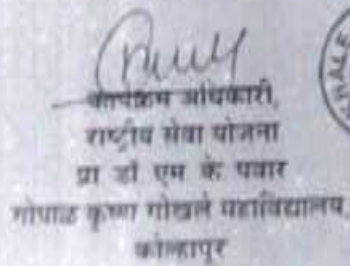 कार्यक्रम अधिकारी,
राष्ट्रीय सेवा योजना
प्रा डॉ एम के पवार
गोपाळ कृष्ण गोखले महाविद्यालय,
कोल्हापूर
KHALE